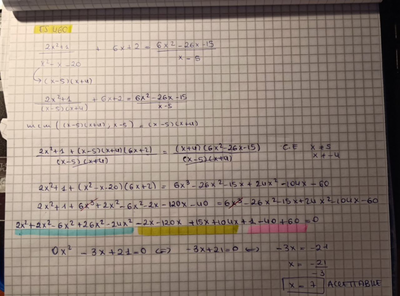 ES 460
2x²+x + 6x+2 = 6x²-26x-15
x²-x-20 x-5
(x-5)(x+4)
2x²+1 + 6x+2 = 6x²-26x-15
(x-5)(x+4) x-5
mcm ((x-5)(x+4), x-5) = (x-5)(x+4)
2x²+1 + (x-5)(x+4)(6x+2) = (x+4)(6x²-26x-15) C.E x≠5
(x-5)(x+4) (x-5)(x+4) x≠-4
2x²+1+(x²-x-20)(6x+2) = 6x³-26x²-15x+24x²-104x-60
2x²+1+6x³+2x²-6x²-2x-120x-40 = 6x³-26x²-15x+24x²-104x-60
2x²+2x²-6x²+26x²-24x²-2x-120x+15x+104x+1-40+60=0
0x² -3x+21=0 ⇔ -3x+21=0 ⇔ -3x=-21
x = -21
-3
x = 7 ACCETTABILE